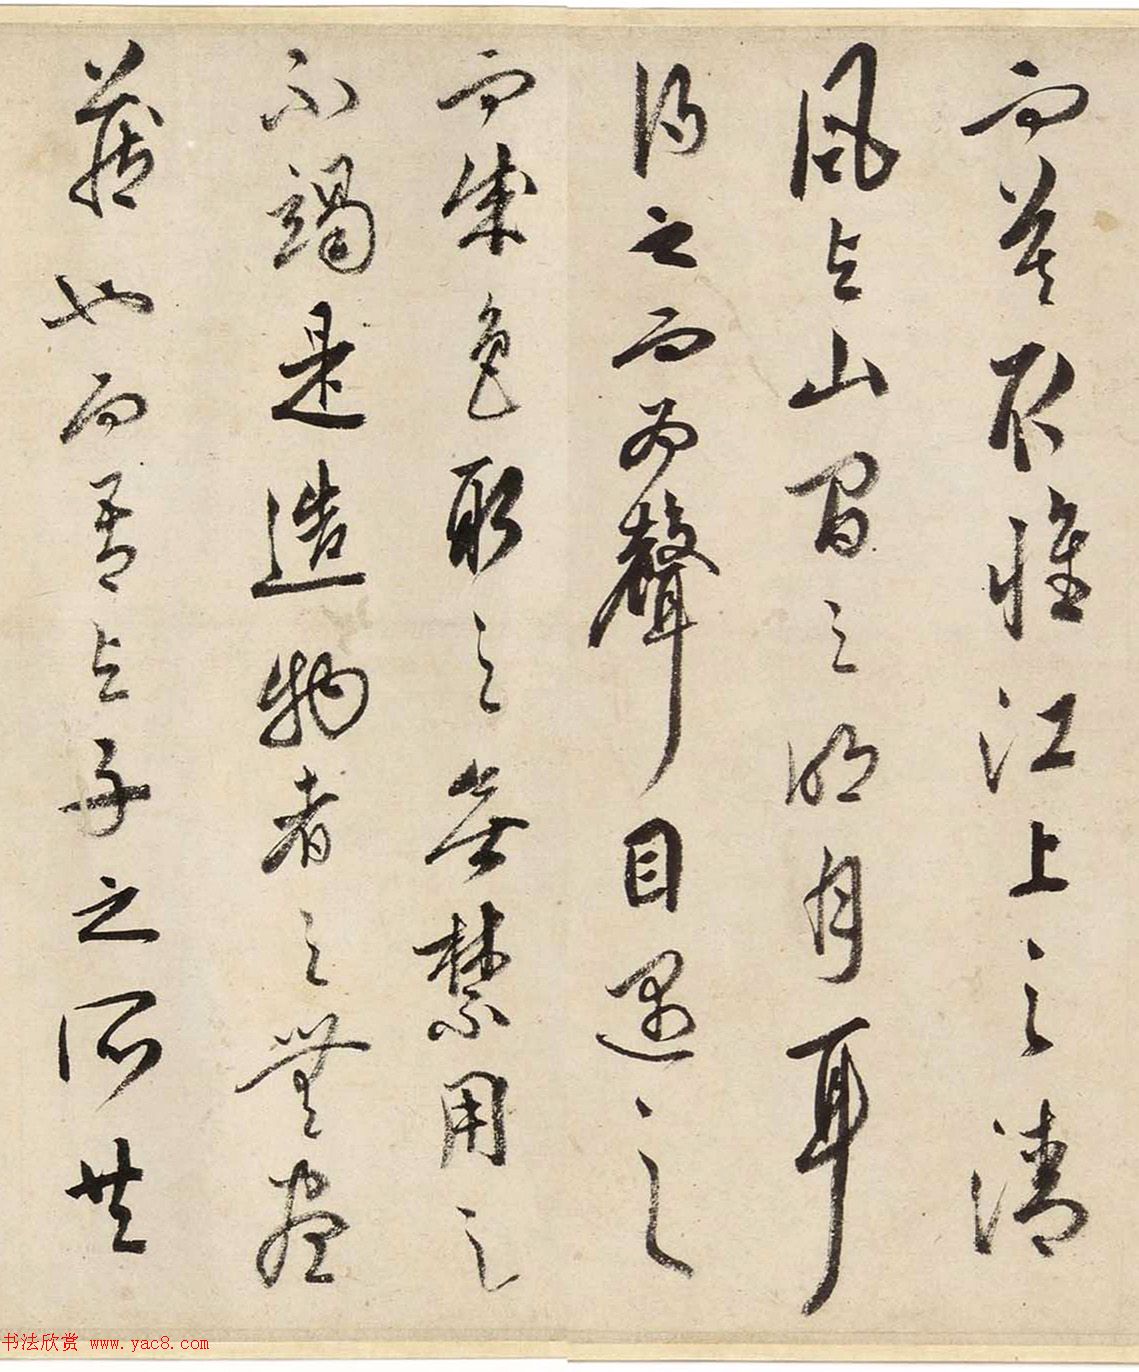 而莫取惟江上之清
風与山間之明月耳
得之而為聲目遇之
而成色取之無禁用之
不竭是造物者之無盡
藏也而吾与子之所共
书法欣赏 www.yac8.com